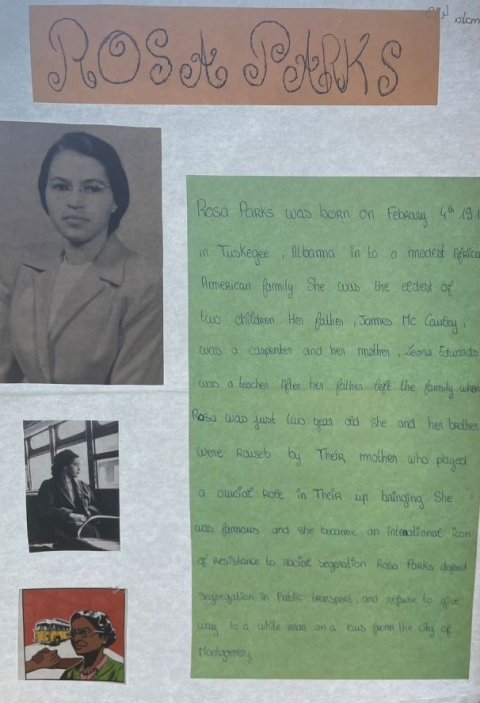 ROSA PARKS
Rosa Parks was born on Febraray 4th 191
in Tuskegee, Albanna in to a modest Africa
American family She was the eldest of
two children Her father, Jannes Mc Cauley,
was a carpenter and her mother, Leona Edwards
was a teacher After her father left the family when
Rosa was just two year old she and her brother
were Rauseb by Their mother who played
a crucial Role in Their up bringing She
was famous and she became an international icon
of Resistance to racial segenation Rosa Parks defend
Segregation in Public transport, and refuse to give
way to a white man on a bus from the city of
Montgomery.